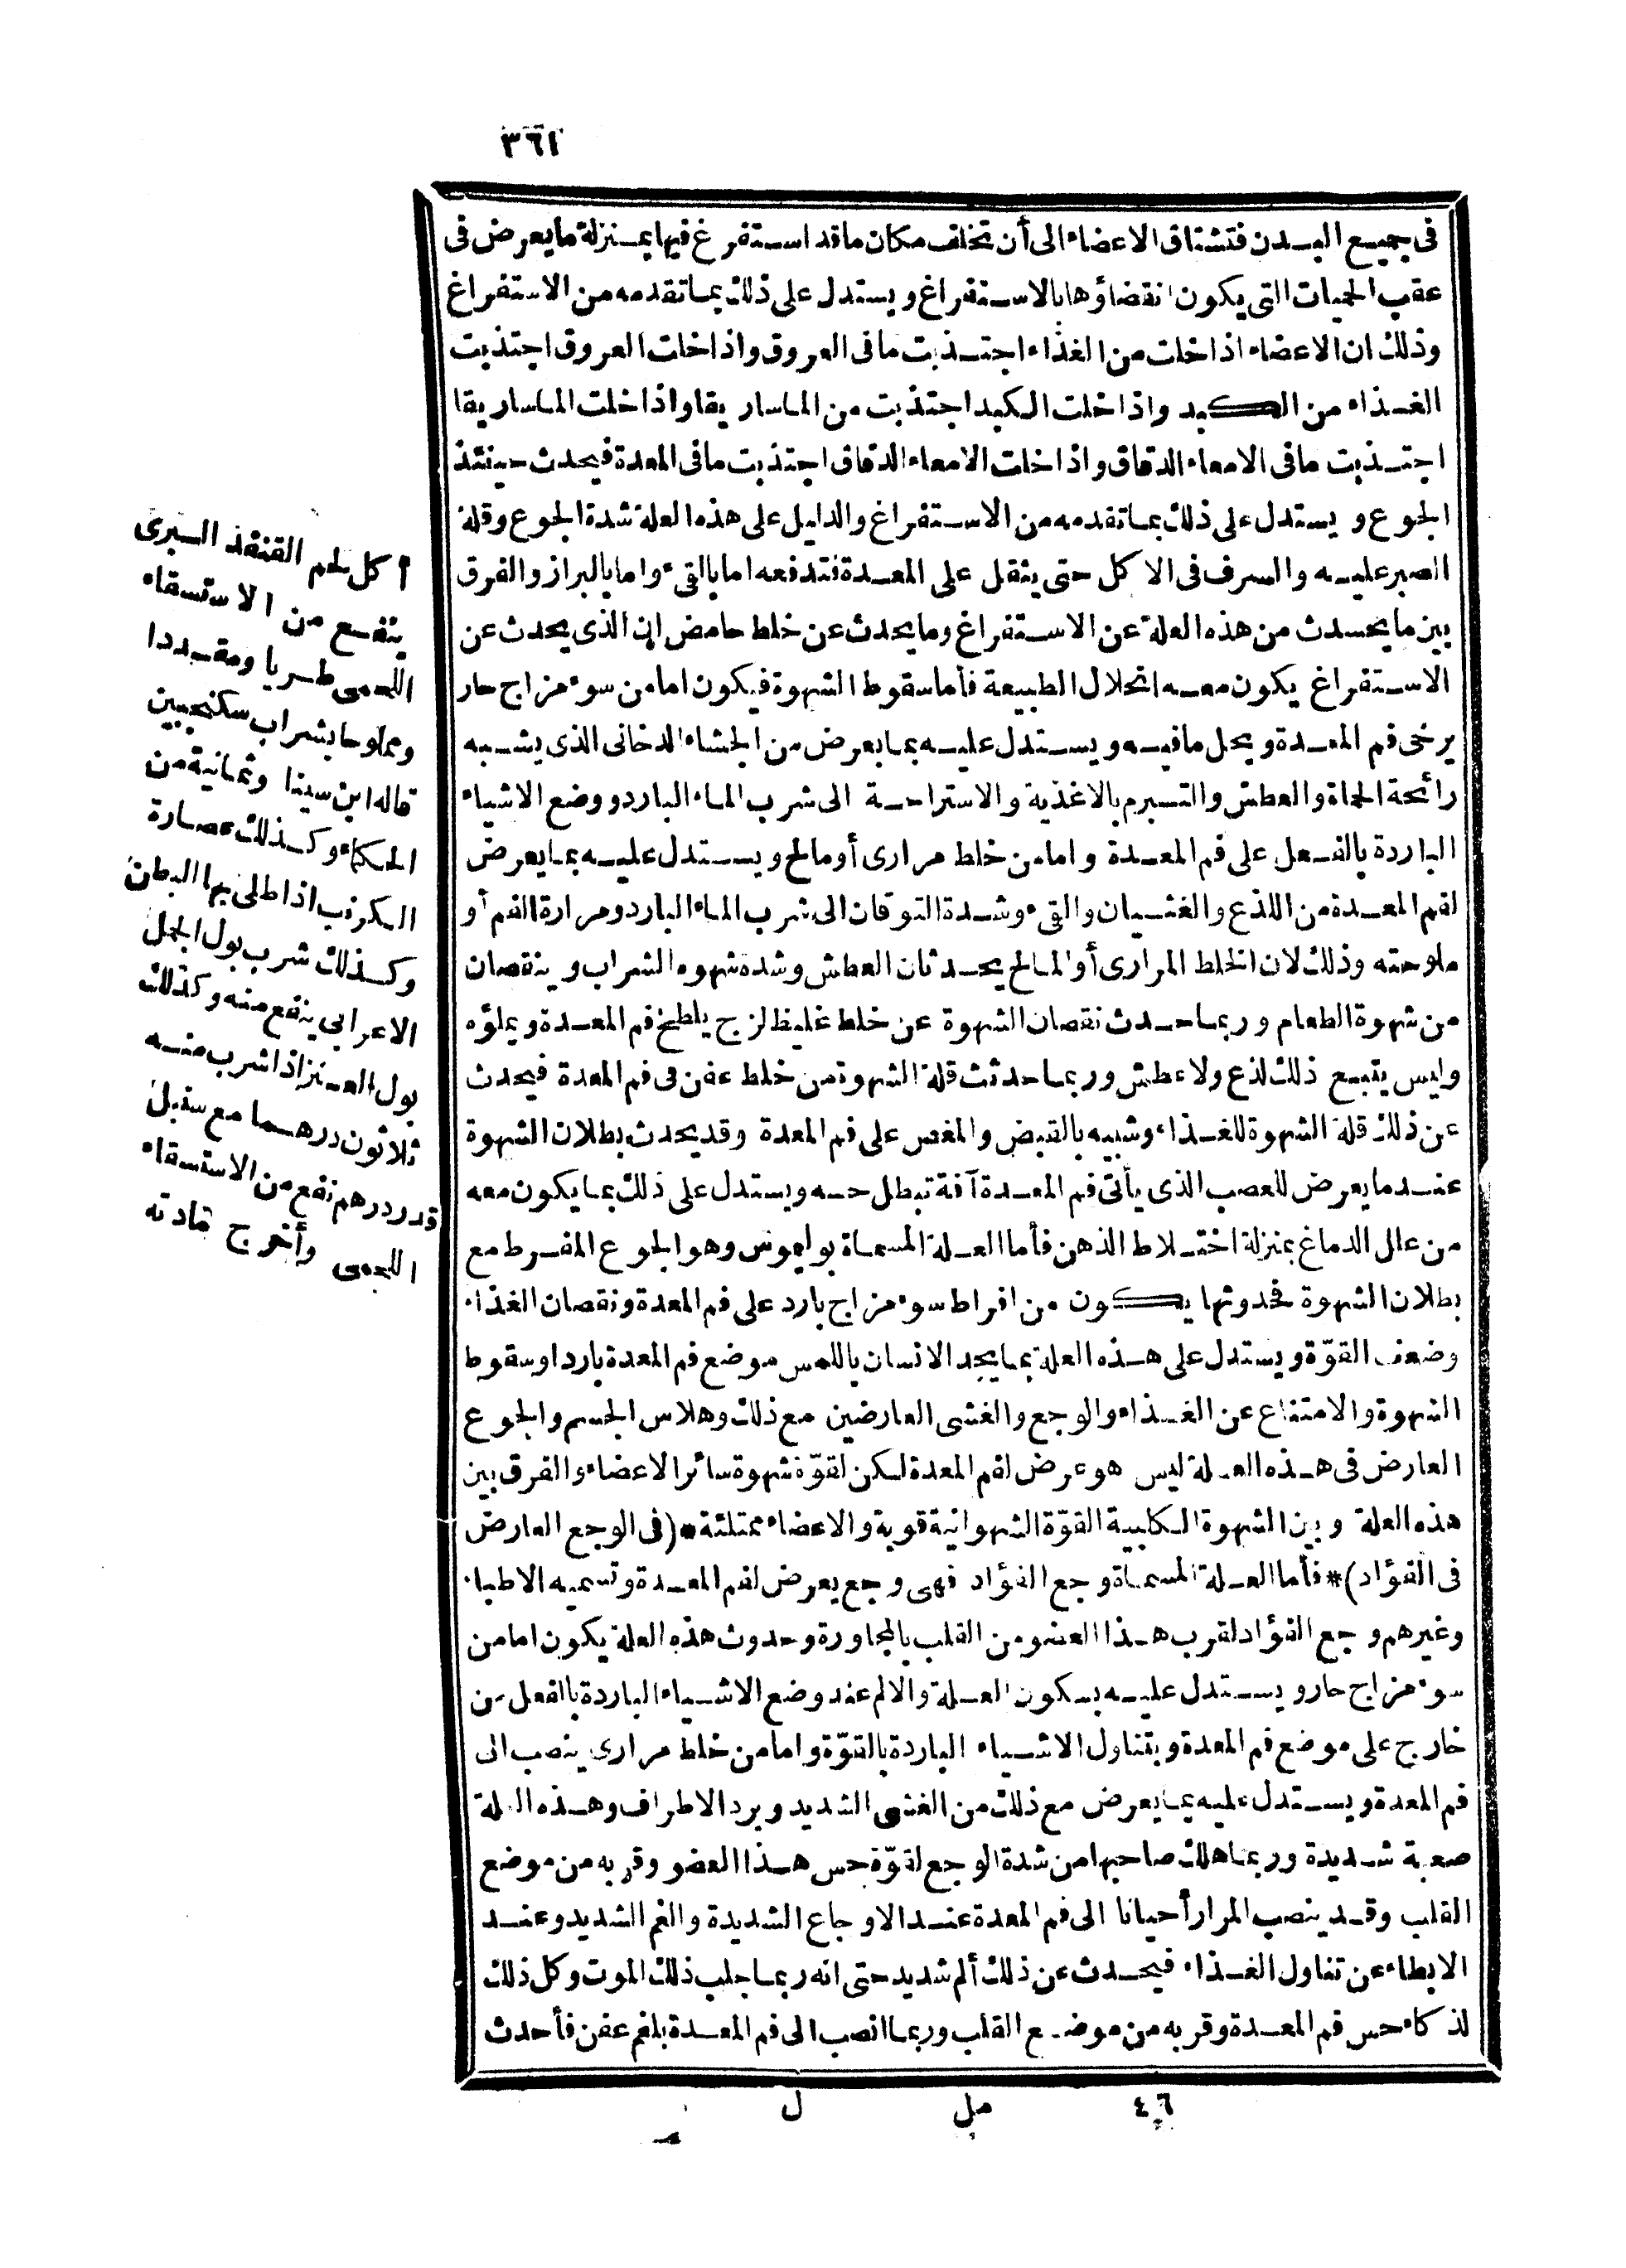 ٣٦١
فى جميع البدن فتشتاق الاعضاء الى أن تخلف مكان ما قد استفرغ فيها بمنزلة ما يعرض فى
عقب الحميات التى يكون انقضاؤها بالاستفراغ ويستدل على ذلك بما تقدمه من الاستفراغ
وذلك ان الاعضاء اذا خلت من الغذاء اجتذبت ما فى العروق واذا خلت العروق اجتذبت
الغذاء من الكبد واذا خلت الكبد اجتذبت من الماساريقا واذا خلت الماساريقا
اجتذبت ما فى الامعاء الدقاق واذا خلت الامعاء الدقاق اجتذبت ما فى المعدة فيحدث حينئذ
الجوع ويستدل على ذلك بما تقدمه من الاستفراغ والدليل على هذه العلة شدة الجوع وقلة
الصبر عليه والسرف فى الاكل حتى يثقل على المعدة فتدفعه اما بالقىء واما بالبراز والفرق
بين ما يحدث من هذه العلة عن الاستفراغ وما يحدث عن خلط حامض ان الذى يحدث عن
الاستفراغ يكون معه انحلال الطبيعة فأما سقوط الشهوة فيكون اما من سوء مزاج حار
يرخى فم المعدة ويحل ما فيه ويستدل عليه بما يعرض من الجشاء الدخانى الذى يشبه
رائحة الحماة والعطش والتبرم بالاغذية والاستراحة الى شرب الماء البارد ووضع الاشياء
الباردة بالفعل على فم المعدة واما من خلط مرارى أو مالح ويستدل عليه بما يعرض
لفم المعدة من اللذع والغثيان والقىء وشدة التوقان الى شرب الماء البارد ومرارة الفم أو
ملوحته وذلك لان الخلط المرارى أو المالح يحدثان العطش وشدة شهوة الشراب وينقصان
من شهوة الطعام وربما حدث نقصان الشهوة عن خلط غليظ لزج يلطخ فم المعدة ويملؤه
وليس يتبع ذلك لذع ولا عطش وربما حدثت قلة الشهوة من خلط عفن فى فم المعدة فيحدث
عن ذلك قلة الشهوة للغذاء وشبيه بالقبض والمغص على فم المعدة وقد يحدث بطلان الشهوة
عند ما يعرض للعصب الذى يأتى فم المعدة آفة تبطل حسه ويستدل على ذلك بما يكون معه
من علل الدماغ بمنزلة اختلاط الذهن فأما العلة المسماة بوليموس وهو الجوع المفرط مع
بطلان الشهوة فحدوثها يكون من افراط سوء مزاج بارد على فم المعدة ونقصان الغذاء
وضعف القوّة ويستدل على هذه العلة بما يجد الانسان باللمس موضع فم المعدة باردا وسقوط
الشهوة والامتناع عن الغذاء والوجع والغشى العارضين مع ذلك وهلاس الجسم والجوع
العارض فى هذه العلة ليس هو عرض لفم المعدة لكن لقوّة شهوة سائر الاعضاء والفرق بين
هذه العلة وبين الشهوة الكلبية القوّة الشهوانية قوية والاعضاء ممتلئة *(فى الوجع العارض
فى الفؤاد)* فأما العلة المسماة وجع الفؤاد فهى وجع يعرض لفم المعدة وتسميه الاطباء
وغيرهم وجع الفؤاد لقرب هذا العضو من القلب بالمجاورة وحدوث هذه العلة يكون اما من
سوء مزاج حار ويستدل عليه بسكون العلة والالم عند وضع الاشياء الباردة بالفعل من
خارج على موضع فم المعدة وبتناول الاشياء الباردة بالقوّة واما من خلط مرارى ينصب الى
فم المعدة ويستدل عليه بما يعرض مع ذلك من الغشى الشديد وبرد الاطراف وهذه العلة
صعبة شديدة وربما هلك صاحبها من شدة الوجع لقوّة حس هذا العضو وقربه من موضع
القلب وقد ينصب المرار أحيانا الى فم المعدة عند الاوجاع الشديدة والغم الشديد وعند
الابطاء عن تناول الغذاء فيحدث عن ذلك ألم شديد حتى انه ربما جلب ذلك الموت وكل ذلك
لذكاء حس فم المعدة وقربه من موضع القلب وربما انصب الى فم المعدة بلغم عفن فأحدث
أكل لحم القنفذ البرى
ينفع من الاستسقاء
اللحمى طريا ومقددا
ومملوحا بشراب سكنجبين
قاله ابن سينا وثمانية من
الحكماء وكذلك عصارة
الكرنب اذا طلى بها البطن
وكذلك شرب بول الجمل
الاعرابى ينفع منه وكذلك
بول العنز اذا شرب منه
ثلاثون درهما مع سنبل
قدر درهم نفع من الاستسقاء
اللحمى وأخرج مادته
٤٦ مل ل